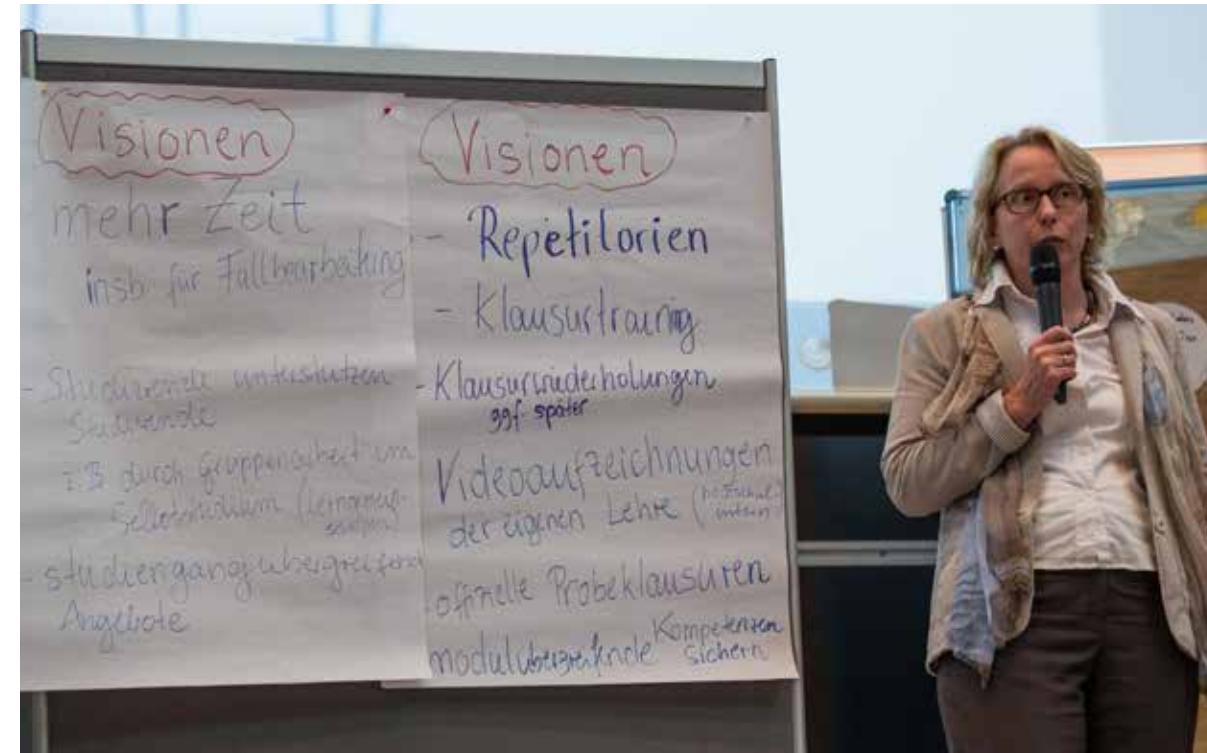 Visionen
mehr Zeit
insb. für Fallbearbeitung
- Studierende unterstützen
Studierende
z.B durch Gruppenarbeit im
Selbststudium (Lerngrup-
- studiengangsübergreifend
Angebote
Visionen
- Repetitorien
- Klausurtraining
- Klausurwiederholungen
ggf. später
Videoaufzeichnungen
der eigenen Lehre (hochschul-
intern)
offizielle Probeklausuren
modulübergreifende Kompetenzen
sichern